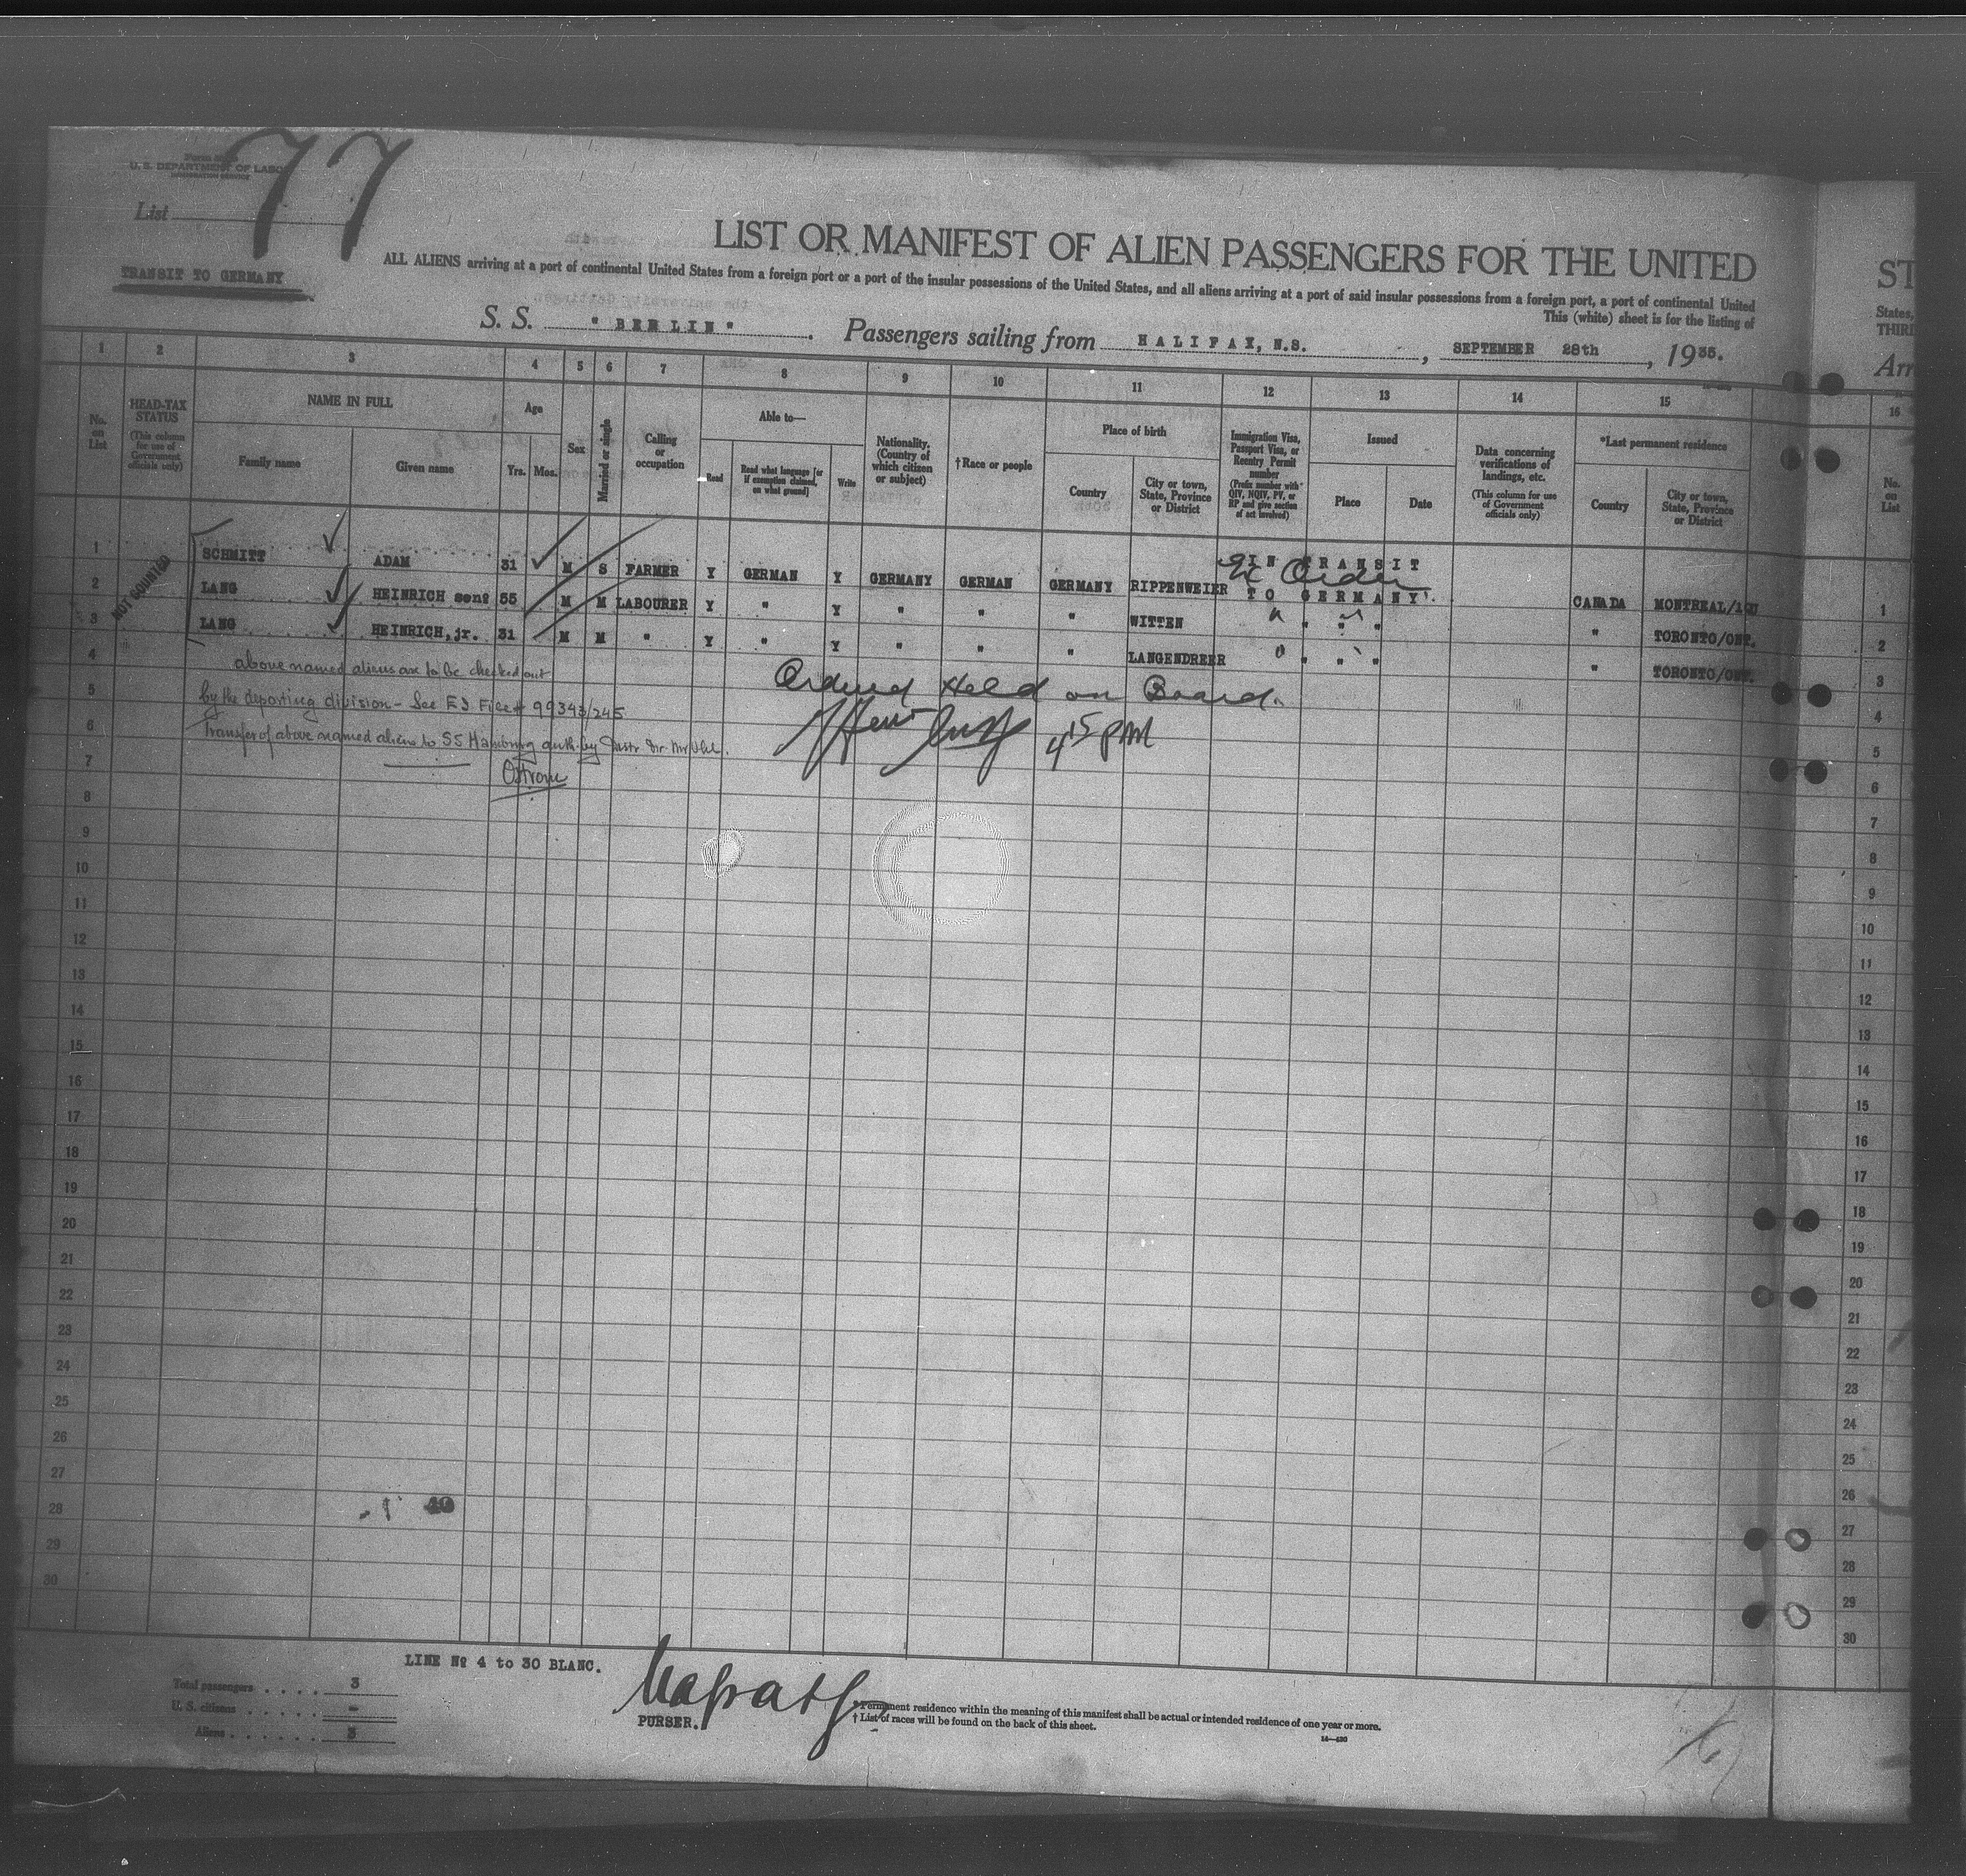 77
U. S. DEPARTMENT OF LABOR
IMMIGRATION SERVICE
List
TRANSIT TO GERMANY
LIST OR MANIFEST OF ALIEN PASSENGERS FOR THE UNITED
ST
ALL ALIENS arriving at a port of continental United States from a foreign port or a port of the insular possessions of the United States, and all aliens arriving at a port of said insular possessions from a foreign port, a port of continental United
States,
This (white) sheet is for the listing of
THIRD
S. S. "BERLIN". Passengers sailing from HALIFAX, N.S., SEPTEMBER 28th, 1935.
Arr
1 2 3 4 5 6 7 8 9 10 11 12 13 14 15 16
No. on List
HEAD-TAX STATUS (This column for use of Government officials only)
NAME IN FULL
Family name
Given name
Age
Yrs. Mos.
Sex
Married or single
Calling or occupation
Able to—
Read
Read what language [or if exemption claimed, on what ground]
Write
Nationality. (Country of which citizen or subject)
†Race or people
Place of birth
Country
City or town, State, Province or District
Immigration Visa, Passport Visa, or Reentry Permit number (Prefix number with QIV, NQIV, PV, or RP and give section of act involved)
Issued
Place
Date
Data concerning verifications of landings, etc. (This column for use of Government officials only)
*Last permanent residence
Country
City or town, State, Province or District
No. on List
NOT COUNTED
1 SCHMITT ADAM 31 M S FARMER Y GERMAN Y GERMANY GERMAN GERMANY RIPPENWEIER IN TRANSIT TO GERMANY. CANADA MONTREAL 1
Order
2 LANG HEINRICH senº 55 M M LABOURER Y " Y " " " WITTEN " " " " TORONTO/ONT. 2
3 LANG HEINRICH, jr. 31 M M " Y " Y " " " LANGENDREER " " " " TORONTO/ONT. 3
above named aliens are to be checked out
by the deporting division - See E.I. File # 99343/245
Transfer of above named aliens to SS Hamburg auth. by
Ostrow
Ordered Held on Board.
4 15 PM
4
5
6
7
8
9
10
11
12
13
14
15
16
17
18
19
20
21
22
23
24
25
26
27
28
29
30
4
5
6
7
8
9
10
11
12
13
14
15
16
17
18
19
20
21
22
23
24
25
26
27
28
29
30
LINE Nº 4 to 30 BLANC.
Total passengers 3
U. S. citizens -
Aliens 3
PURSER.
*Permanent residence within the meaning of this manifest shall be actual or intended residence of one year or more.
† List of races will be found on the back of this sheet.
14—430